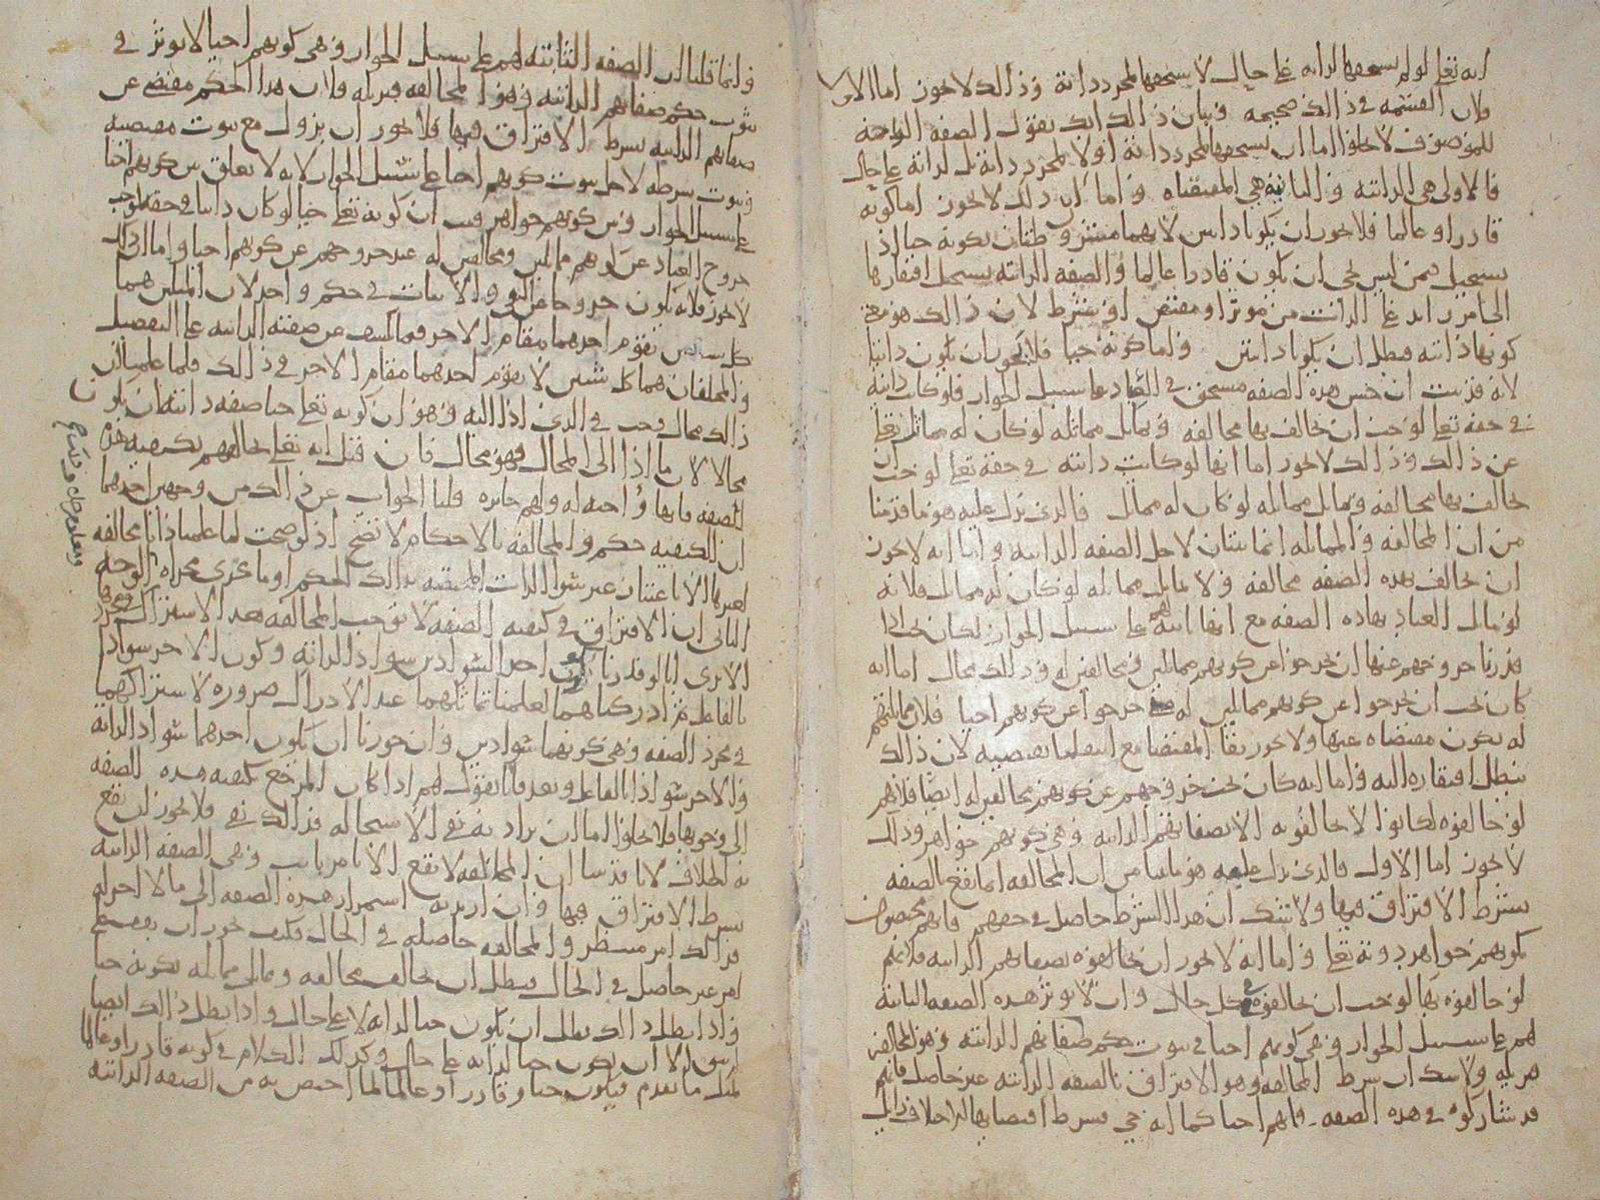 انه تعلى لو لم يستحقها لذاته على حال لاستحقها لمجرد ذاته وذالك لا يجوز اما الاول
فلان القسمة في ذالك صحيحه وبيان ذالك انك تقول الصفه الواجبة
للموصوف لا تخلوا اما ان يستحقها لمجرد ذاته او لا لمجرد ذاته بل لذاته على حال
فالاولى هي الذاتيه والثانيه هي المقتضاه واما ان ذلك لا يجوز اما كونه
قادرا وعالما فلا يجوز ان يكونا ذاتيين لانهما مشروطتان بكونه حيا اذ
يستحيل فيمن ليس بحي ان يكون قادرا عالما والصفه الذاتيه يستحيل افتقارها
الى امر زايد على الذات من موثر او مقتض او شرط لان ذالك هو معنى
كونها ذاتيه فبطل ان يكونا ذاتيتين واما كونه حيا فلا يجوز ان يكون ذاتيا
لانه قد ثبت ان جنس هذه الصفه مستحق في العباد على سبيل الجواز فلو كانت ذاتيه
في حقه تعلى لوجب ان يخالف بها مخالفه ويماثل مماثله لو كان له مماثل تعلى
عن ذالك وذالك لا يجوز اما انها لو كانت ذاتيه في حقه تعلى لوجب ان
يخالف بها مخالفه ويماثل مماثله لو كان له مماثل فالذي يدل عليه هو ما قدمنا
من ان المخالفه والمماثله انما يثبتان لاجل الصفه الذاتيه واما انه لا يجوز
ان يخالف بهذه الصفه مخالفه ولا يماثل مماثله لو كان له مماثل فلانه
لو ماثل العباد بهاذه الصفه مع انها ثابته لهم على سبيل الجواز لكان يجب اذا
قدرنا خروجهم عنها ان يخرجوا عن كونهم مماثلين ومخالفين له وذالك محال اما انه
كان يجب ان يخرجوا عن كونهم مماثلين له متى خرجوا عن كونهم احيا فلان مماثلتهم
له تكون مقتضاه عنها ولا يجوز بقا المقتضا مع انتفا ما يقتضيه لان ذالك
يبطل افتقاره اليه واما انه كان يجب خروجهم عن كونهم مخالفين له ايضا فلانهم
لو خالفوه لكانوا لا يخالفونه الا بصفاتهم الذاتيه وهي كونهم جواهر وذلك
لا يجوز اما الاول فالذي يدل عليه هو ما بينا من ان المخالفه انما تقع بالصفه
بشرط الافتراق فيها ولا شك ان هذا الشرط حاصل في حقهم فانهم مخصوصون
بكونهم جواهر دونه تعلى واما انه لا يجوز ان يخالفوه بصفاتهم الذاتيه فلانهم
لو خالفوه بها لوجب ان يخالفوه في كل حال وان لا يوثر هذه الصفه الثابته
لهم على سبيل الجواز وهي كونهم احيا في ثبوت حكم صفاتهم الذاتيه وهو المخالفه
قبل ولا شك ان شرط المخالفه وهو الافتراق بالصفه الذاتيه غير حاصل فانهم
قد شاركوه في هذه الصفه وانهم احيا كما انه حي
وانما قلنا ان الصفه الثابته لهم على سبيل الجواز وهي كونهم احيا لا يوثر في
ثبوت حكم صفاتهم الذاتيه وهو المخالفه فلان هذا الحكم مقتضى عن
صفاتهم الذاتيه بشرط الافتراق فيها فلا يجوز ان يزول مع ثبوت مقتضيه
وثبوت شرطه لاجل ثبوت كونهم احيا على سبيل الجواز لانه لا تعلق بين كونهم احيا
على سبيل الجواز وبين كونهم جواهر فثبت ان كونه تعلى حيا لو كان ذاتيا في حقه لوجب
خروج العباد عن كونهم مماثلين ومخالفين له عند خروجهم عن كونهم احيا واما ان ذلك
لا يجوز فلانه يكون خروجا عن النفي والاثبات في حكم واحد لان المثلين هما
كل شيئين يقوم احدهما مقام الاخر فيما يكشف عن صفته الذاتيه على التفصيل
والمختلفان هما كل شيئين لا يقوم احدهما مقام الاخر في ذالك فلما علمنا ان
ذالك محال وجب في الذي ادا اليه وهو ان كونه تعلى حيا صفه ذاتيه ان يكون
محالا لان ما ادا الى المحال فهو محال فان قيل انه تعلى يخالفهم بكيفيه هذه
الصفه فانها واجبه له ولهم جايزه قلنا الجواب عن ذالك من وجهين احدهما
ان الكيفيه حكم والمخالفه بالاحكام لا تصح اذ لو صحت لما علمنا ذاتا مخالفه
لغيرها الا باعتبار غير سوا الذات المختصه بذالك الحكم او ما يجري مجراه الوجه
الثاني ان الافتراق في كيفيه الصفه لا يوجب المخالفه بعد الاشتراك في مجردها
الا ترى انا لو قدرنا كون احد السوادين سوادا لذاته وكون الاخر سوادا
بالفاعل ثم ادركناهما لعلمنا تماثلهما عند الادراك ضروره لاشتراكهما
في مجرد الصفه وهي كونهما سوادين وان جوزنا ان يكون احدهما سوادا لذاته
والاخر سوادا بالفاعل وبعد فانا نقول لهم اذا كان المرجع بكيفيه هذه الصفه
الى وجوبها فلا يخلوا اما ان يراد به نفي الاستحاله فذالك نفي فلا يجوز ان يقع
به الخلاف لانا قد بينا ان المخالفه لا تقع الا بامر ثابت وهي الصفه الذاتيه
بشرط الافتراق فيها وان اريد به استمرار هذه الصفه الى ما لا اخر له
فذالك امر منتظر والمخالفه حاصله في الحال فكيف يجوز ان يقتضى
امر غير حاصل في الحال فبطل ان يخالف مخالفه ويماثل مماثله بكونه حيا
واذا بطل ذالك بطل ان يكون حيا لذاته لا على حال واذا بطل ذالك ايضا
لم يبق الا ان يكون حيا لذاته على حال وكذلك الكلام في كونه قادرا وعالما
لمثل ما تقدم فيكون حيا وقادرا وعالما لما اختص به من الصفه الذاتيه